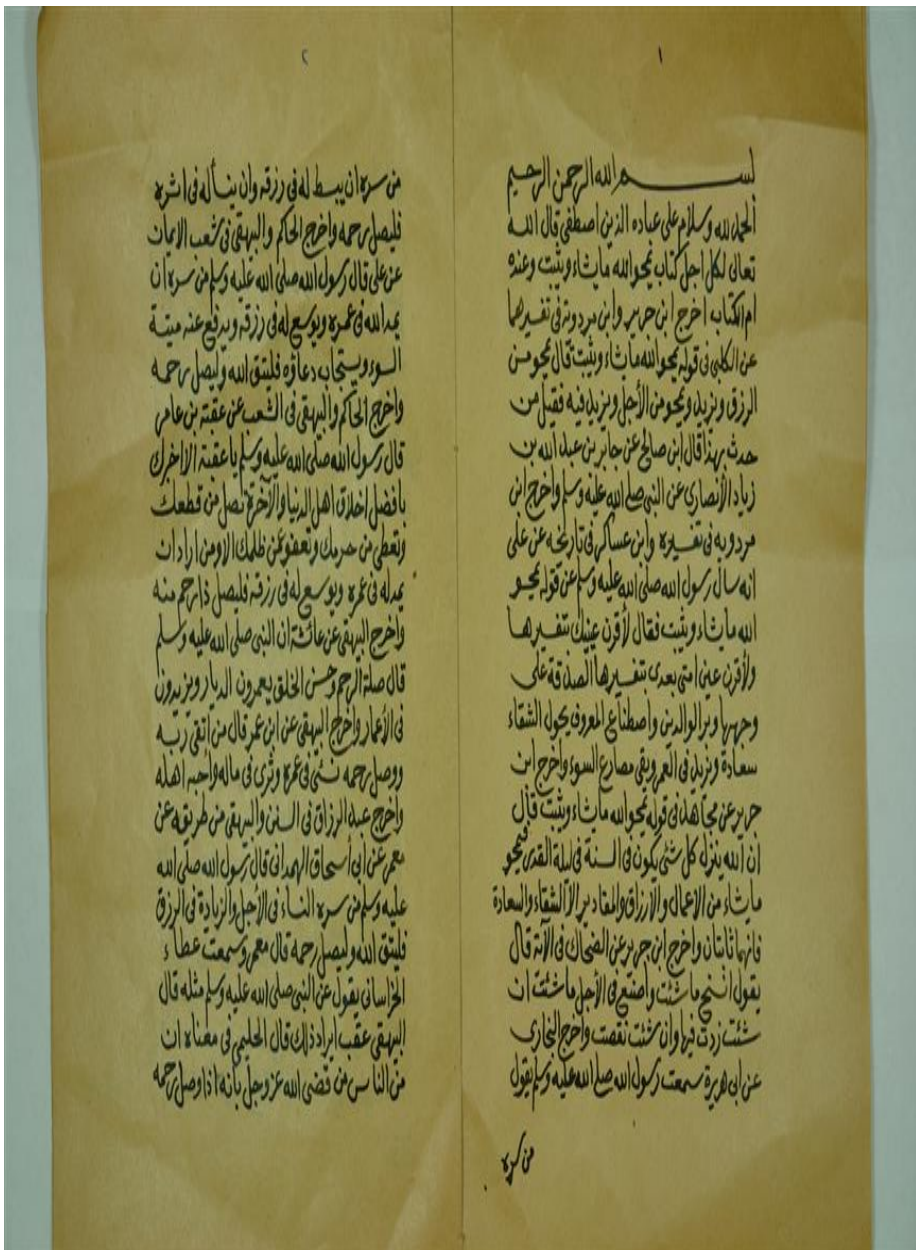 ١
بسم الله الرحمن الرحيم
الحمد لله وسلام على عباده الذين اصطفى قال الله
تعالى لكل اجل كتاب يمحو الله ما يشاء ويثبت وعنده
ام الكتاب اخرج ابن جرير وابن مردوية في تفسيرهما
عن الكلبي في قوله يمحو الله ما يشاء ويثبت قال يمحو من
الرزق ويزيد ويمحو من الأجل ويزيد فيه فقيل من
حدث بهذا قال ابن صالح عن جابر بن عبد الله بن
زياد الأنصاري عن النبي صلى الله عليه وسلم واخرج ابن
مردويه في تفسيره وابن عساكر في تاريخه عن على
انه سال رسول الله صلى الله عليه وسلم عن قوله يمحو
الله ما يشاء ويثبت فقال لأقرن عينيك بتفسيرها
ولأقرن عين امتى بعدى بتفسيرها الصدقة على
وجهها وبر الوالدين واصطناع المعروف يحول الشقاء
سعادة ويزيد في العمر ويقى مصارع السوء واخرج ابن
جرير عن مجاهد في قوله يمحو الله ما يشاء ويثبت قال
ان الله ينزل كل شئ يكون في السنة في ليلة القدر فيمحو
ما يشاء من الاعمال والأرزاق والمقادير الا الشقاء والسعادة
فانهما ثابتان واخرج ابن جرير عن الضحاك في الآية قال
يقول انسخ ما شئت واصنع في الأجل ما شئت ان
شئت زدت فيها وان شئت نقصت واخرج البخارى
عن ابى هريرة سمعت رسول الله صلى الله عليه وسلم يقول
من سره
٢
من سره ان يبسط له في رزقه وان ينسأ له في اثره
فليصل رحمه واخرج الحاكم والبيهقى في شعب الايمان
عن على قال رسول الله صلى الله عليه وسلم من سره ان
يمد الله في عمره ويوسع له في رزقه ويدفع عنه ميتة
السوء ويستجاب دعاؤه فليتق الله وليصل رحمه
واخرج الحاكم والبيهقى في الشعب عن عقبة بن عامر
قال رسول الله صلى الله عليه وسلم يا عقبة الا اخبرك
بافضل اخلاق اهل الدنيا والآخرة تصل من قطعك
وتعطى من حرمك وتعفو عن ظلمك الا ومن اراد ان
يمد له في عمره ويوسع له في رزقه فليصل ذا رحم منه
واخرج البيهقى عن عائشة ان النبى صلى الله عليه وسلم
قال صلة الرحم وحسن الخلق يعمرون الديار ويزيدون
في الأعمار واخرج البيهقى عن ابن عمر قال من اتقى ربه
ووصل رحمه نسئ في عمره وثرى في ماله واحبه اهله
واخرج عبد الرزاق في السنن والبيهقى من طريقه عن
معمر عن ابى أسحاق الهمدانى قال رسول الله صلى الله
عليه وسلم من سره النساء في الأجل والزيادة في الرزق
فليتق الله وليصل رحمه قال معمر وسمعت عطاء
الخراسانى يقول عن النبى صلى الله عليه وسلم مثله قال
البيهقى عقب ايراد ذلك قال الحليمى في معناه ان
من الناس من قضى الله عز وجل بأنه اذا وصل رحمه